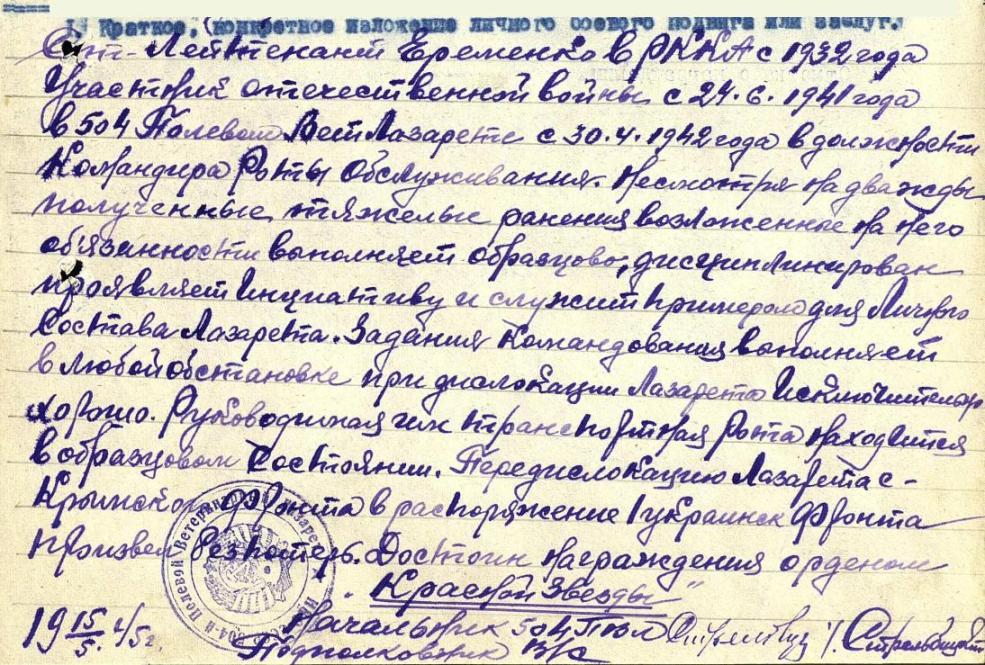 1. Краткое, конкретное изложение личного боевого подвига или заслуг.
Ст. Лейтенант Еременко в РККА с 1932 года
Участник отечественной войны с 24.6.1941 года
в 504 Полевом Вет Лазарете с 30.4.1942 года в должности
Командира Роты Обслуживания. Несмотря на дважды
полученные тяжелые ранения возложенные на него
обязанности выполняет образцово, дисциплинирован
проявляет инициативу и служит примером для Личного
Состава Лазарета. Задания Командования выполняет
в любой обстановке при дислокации Лазарета Исключительно
хорошо. Руководимая им транспортная рота находится
в образцовом Состоянии. Передислокацию Лазарета с-
Крымского фронта в распоряжение 1 украинск фронта
произвел без потерь. Достоин награждения орденом
"Красной Звезды"
19 15/5 45г. Начальник 504 ПВЛ
Подполковник В/С /Стрельбицкий